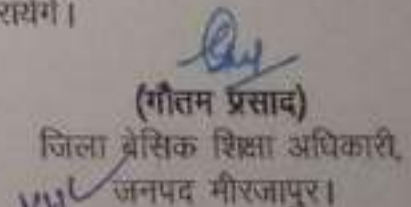 रायेंगे।
(गौतम प्रसाद)
जिला बेसिक शिक्षा अधिकारी,
जनपद मीरजापुर।